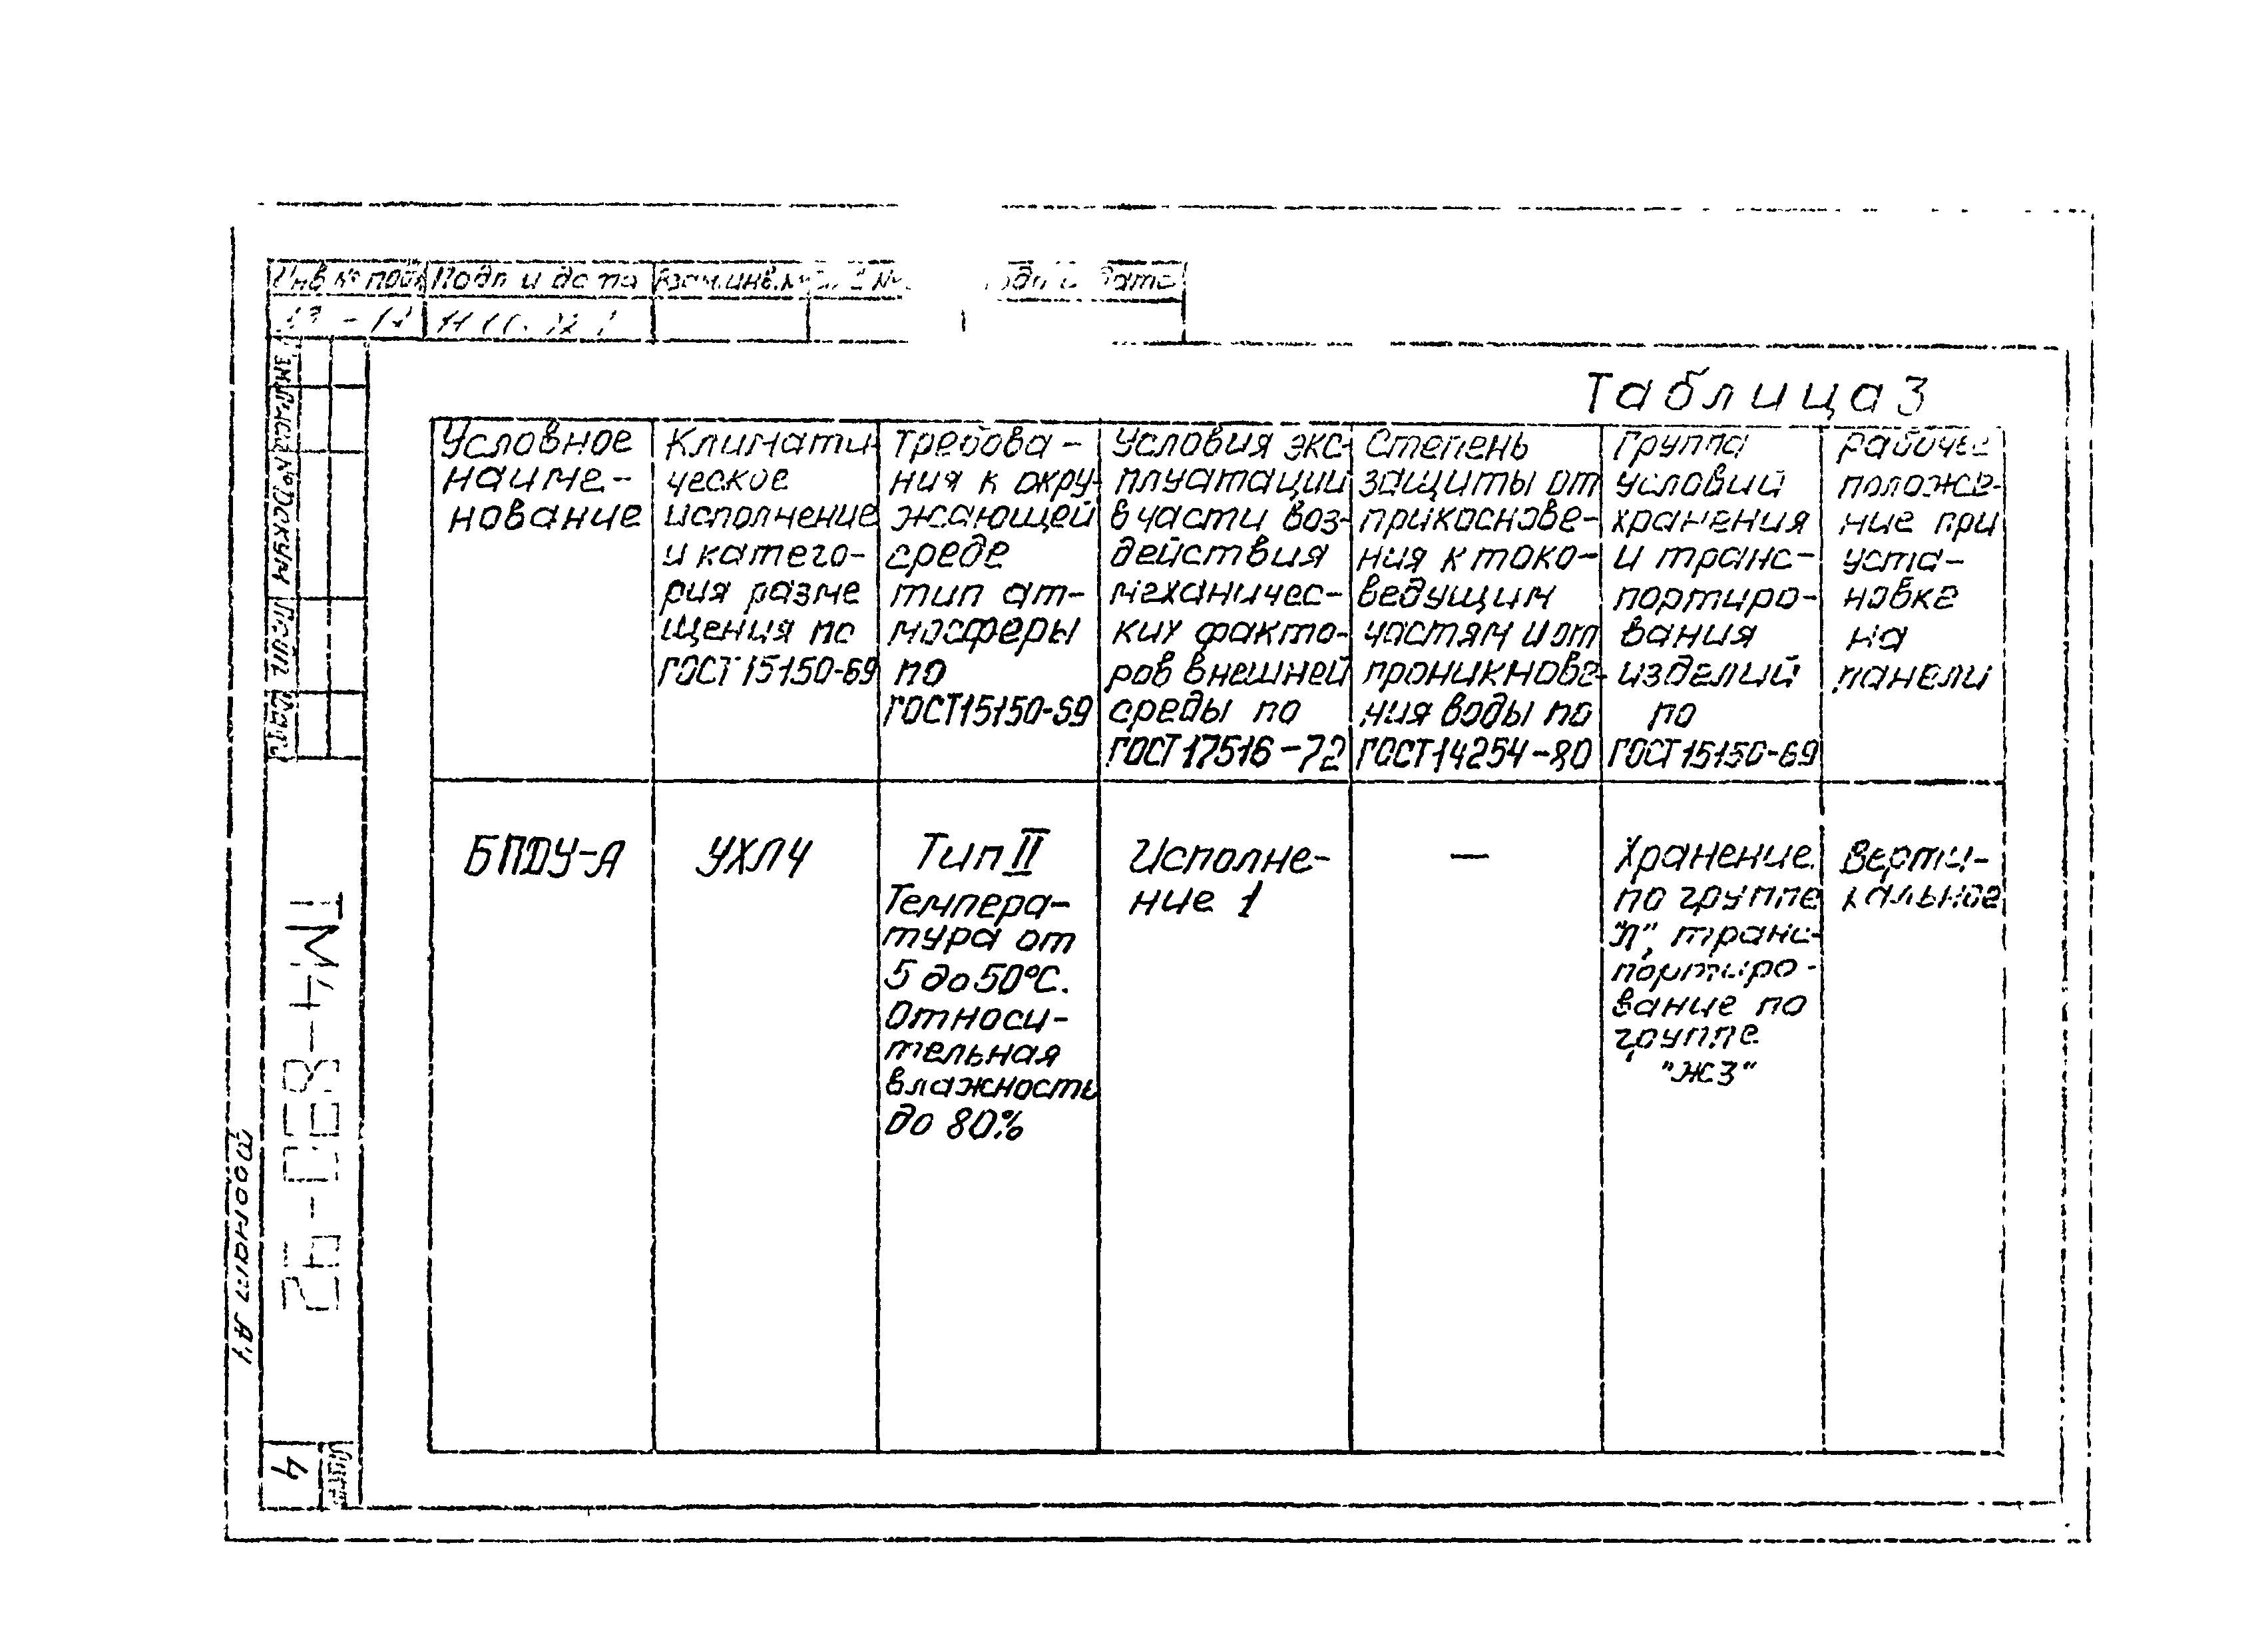 Инв № подл Подп и дата Взам.инв.№
Таблица 3
Условное
наиме-
нование
Климати-
ческое
исполнение
и катего-
рия разме
щения по
ГОСТ 15150-69
Требова-
ния к окру-
жающей
среде
тип ат-
мосферы
по
ГОСТ15150-69
Условия экс-
плуатации
в части воз-
действия
механичес-
ких факто-
ров внешней
среды по
ГОСТ 17516-72
Степень
защиты от
прикоснове-
ния к токо-
ведущим
частям и от
проникнове-
ния воды по
ГОСТ14254-80
Группа
условий
хранения
и транс-
портиро-
вания
изделий
по
ГОСТ15150-69
Рабочее
положе-
ние при
уста-
новке
на
панели
БПДУ-А
УХЛ4
Тип II
Темпера-
тура от
5 до 50°С.
Относи-
тельная
влажность
до 80%
Исполне-
ние 1
—
Хранение
по группе
"Л", транс-
портиро-
вание по
группе
"Ж3"
Верти-
кальное
ТМ4-830-25
Формат А4
Лист
4